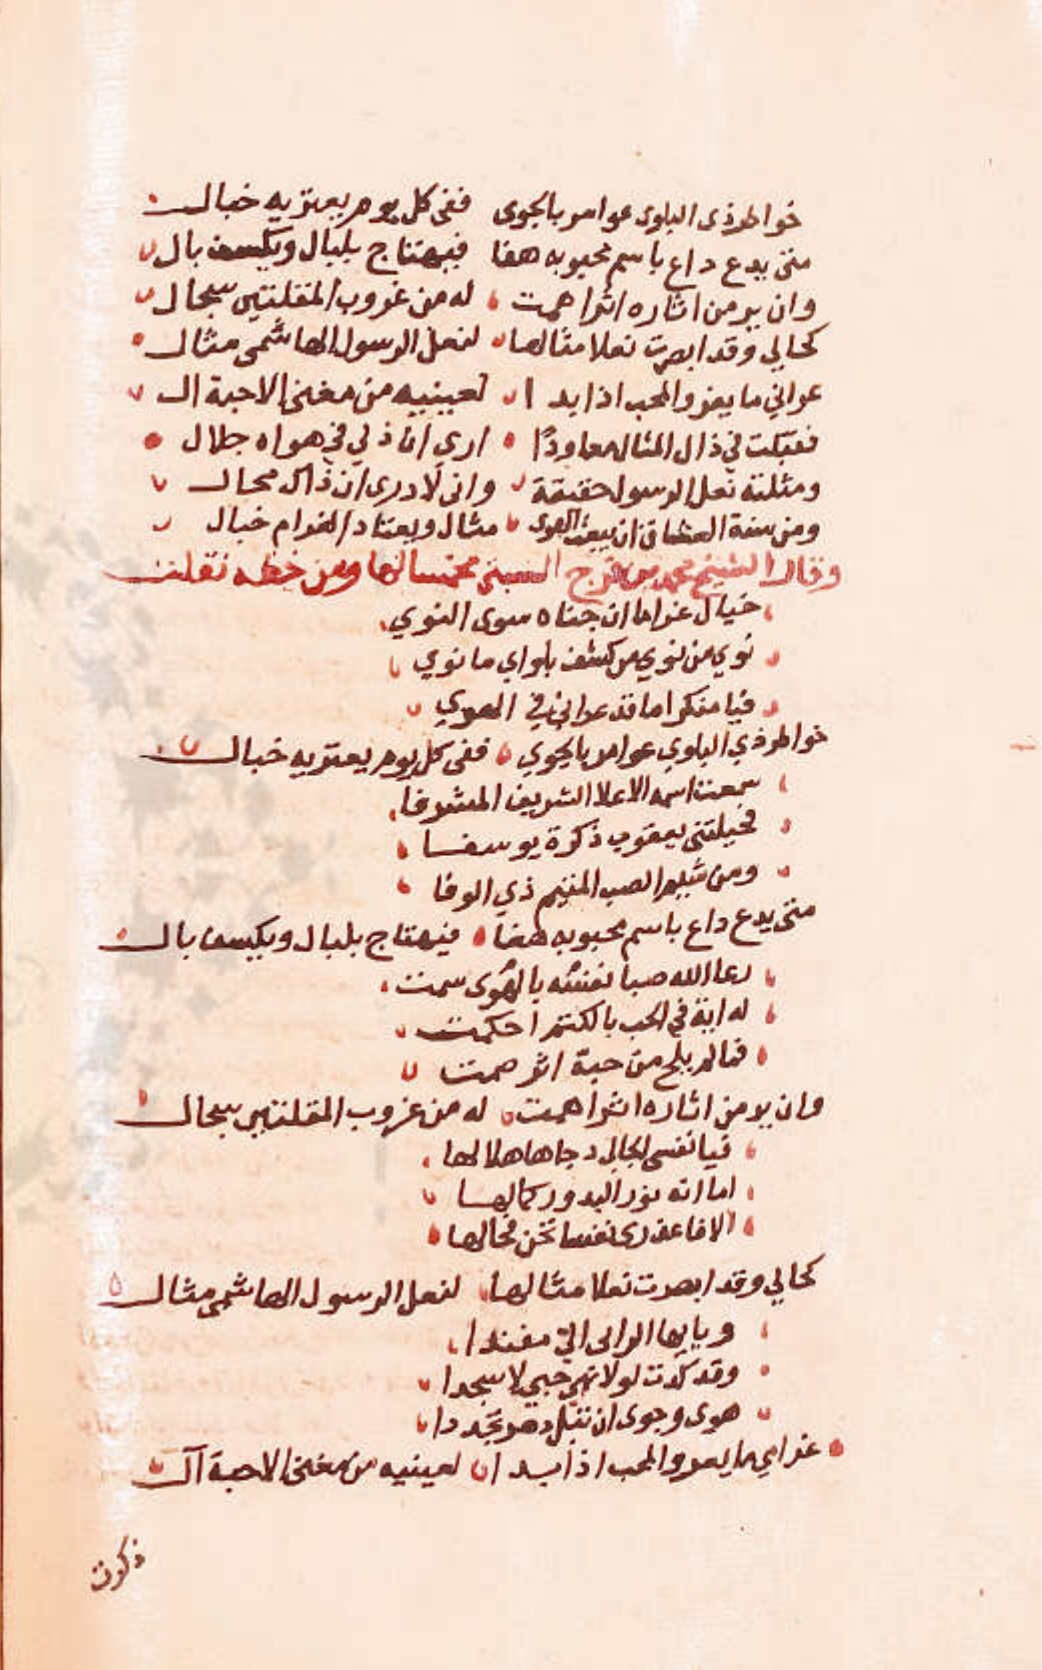 خواطر ذى البلوى عوامر بالجوى ففى كل يوم يعتريه خبال
متى يدع داع باسم محبوبه هفا فيهتاج بلبال ويكسف بال
وان ير من اثاره اثرا همت له من غروب المقلتين سجال
كحالي وقد ابصرت نعلا مثالها لنعل الرسول الهاشمى مثال
عراني ما يعرو المحب اذا بدا لعينيه من مغنى الاحبة ال
فقبلت في ذاك المثال معاودًا ارى ان ذلي في هواه جلال
ومثلته نعل الرسول حقيقة وانى لادرى ان ذاك محال
ومن سنة العشاق ان يبعث الهوى مثال ويعتاد الغرام خيال
وقال الشيخ محمد بن فرج السبتى مخمسا لها ومن خطه نقلت
خيال غراما ان جناه سوى النوي
نوي من نوي من كشف بلواي ما نوي
فيا منكرا ما قد عراني في الهوي
خواطر ذي البلوي عوامر بالجوي ففى كل يوم يعتريه خبال
سمعت اسمه الاعلا الشريف المشرفا
فخيلتنى يعقوب ذكرة يوسفا
ومن شيم الصب المتيم ذي الوفا
متى يدع داع باسم محبوبه هفا فيهتاج بلبال ويكسف بال
رعا الله صبا نفسه بالهوى سمت
له اية في الحب بالكتم احكمت
فما لم يلح من حبه اثر صمت
وان ير من اثاره اثرا همت له من غروب المقلتين سجال
فيا نفسى دجاها هلالها
اما انه نور البدور كمالها
الا فاعذرى نفسا تحن فحالها
كحالي وقد ابصرت نعلا مثالها لنعل الرسول الهاشمى مثال
ويايها الرائى الي مفندا
وقد كدت لولا نهي حبي لاسجدا
هوى وجوى ان تبل دهر تجددا
عراني ما يعرو المحب اذا بدا لعينيه من مغنى الاحبة آل
ذكرت